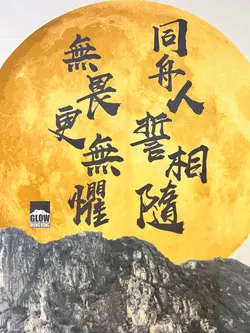 同舟人
誓相隨
無畏
更無懼
GLOW
HONG KONG